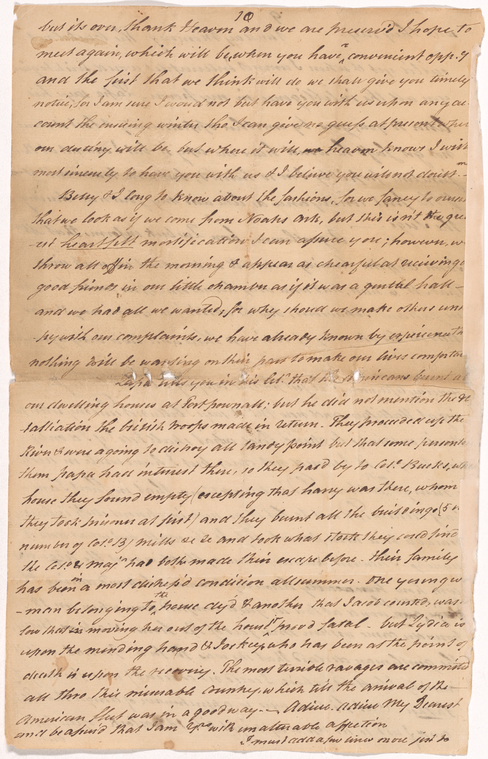 10
but its over, thank Heaven and we are preserv'd I hope to
meet again, which will be, when you have a convenient opp.y
and the first that we think will do we shall give you timely
notice, for I am sure I woud not but have you with us upon any ac
count the ensuing winter tho I can give no guess at present where
our destiny will be but where it will, heaven knows I wish
most sincerely to have you with us & I believe you will not doubt
Betsy & I long to know about the fashions, for we fancy to ourse
that we look as if we came from Noahs ark, but this isn't the gre
est heartfelt mortification I can assure you; however, we
throw all off in the morning & appear as chearful at receiving
good friends in our little chamber as if it was a gentel hall
and we had all we wanted, for why should we make others unea
sy with our complaints, we have already known by experience
nothing will be wanting on their part to make our lives comfortab
Papa tells you in his let.r that the Americans burnt
our dwelling houses at Fort pownall; but he did not mention the re
taliation the british troops made in return. They proceeded up the
River & were a going to distroy all Sandy point but that some
them papa had interest there, so they pass'd by to Col.o Bucks,
house they found empty (excepting that harry was there, whom
they took prisoner at first) and they burnt all the buildings (5 in
number of Col.o B) mills &c &c and took what stock they could find
the Col.o & maj.r had both made their escape before. Their family
has been in a most distress'd condition all summer. One young wo
-man belonging to the house dy'd & another that I scarce counted, was
low that in moving her out of the house prov'd fatal - but Lydia is
upon the mending hand & Jockey who has been at the point of
death is upon the recovery. The most terrible ravages are committed
all thro this miserable country, which till the arrival of the
American fleet was in a good way — Adieu. adieu My Dearest
and be assur'd that I am y.rs with unalterable affection
I must add a few lines more just to